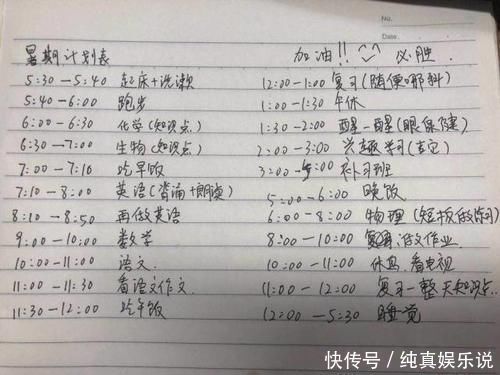 No.
Date.
暑期计划表
5:30—5:40 起床+洗漱
5:40—6:00 跑步
6:00—6:30 化学(知识点)
6:30—7:00 生物(知识点)
7:00—7:10 吃早饭
7:10—8:00 英语(背诵+朗读)
8:10—8:50 再做英语
9:00—10:00 数学
10:00—11:00 语文.
11:00—11:30 看语文作文
11:30—12:00 吃午饭
加油!! 必胜.
12:00—1:00 复习(随便哪科)
1:00—1:30 午休
1:30—2:00 醒一醒(眼保健)
2:00—3:00 兴趣学习(吉它)
3:00—5:00 补习班
5:00—6:00 晚饭
6:00—8:00 物理(短板做练习)
8:00—10:00 语文作业
10:00—11:00 休息.看电视
11:00—12:00 复习一整天知识点..
12:00—5:30 睡觉
快传号/纯真娱乐说